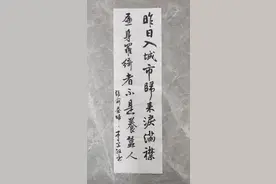 昨日入城市歸来淚滿襟
遍身羅綺者不是養蠶人